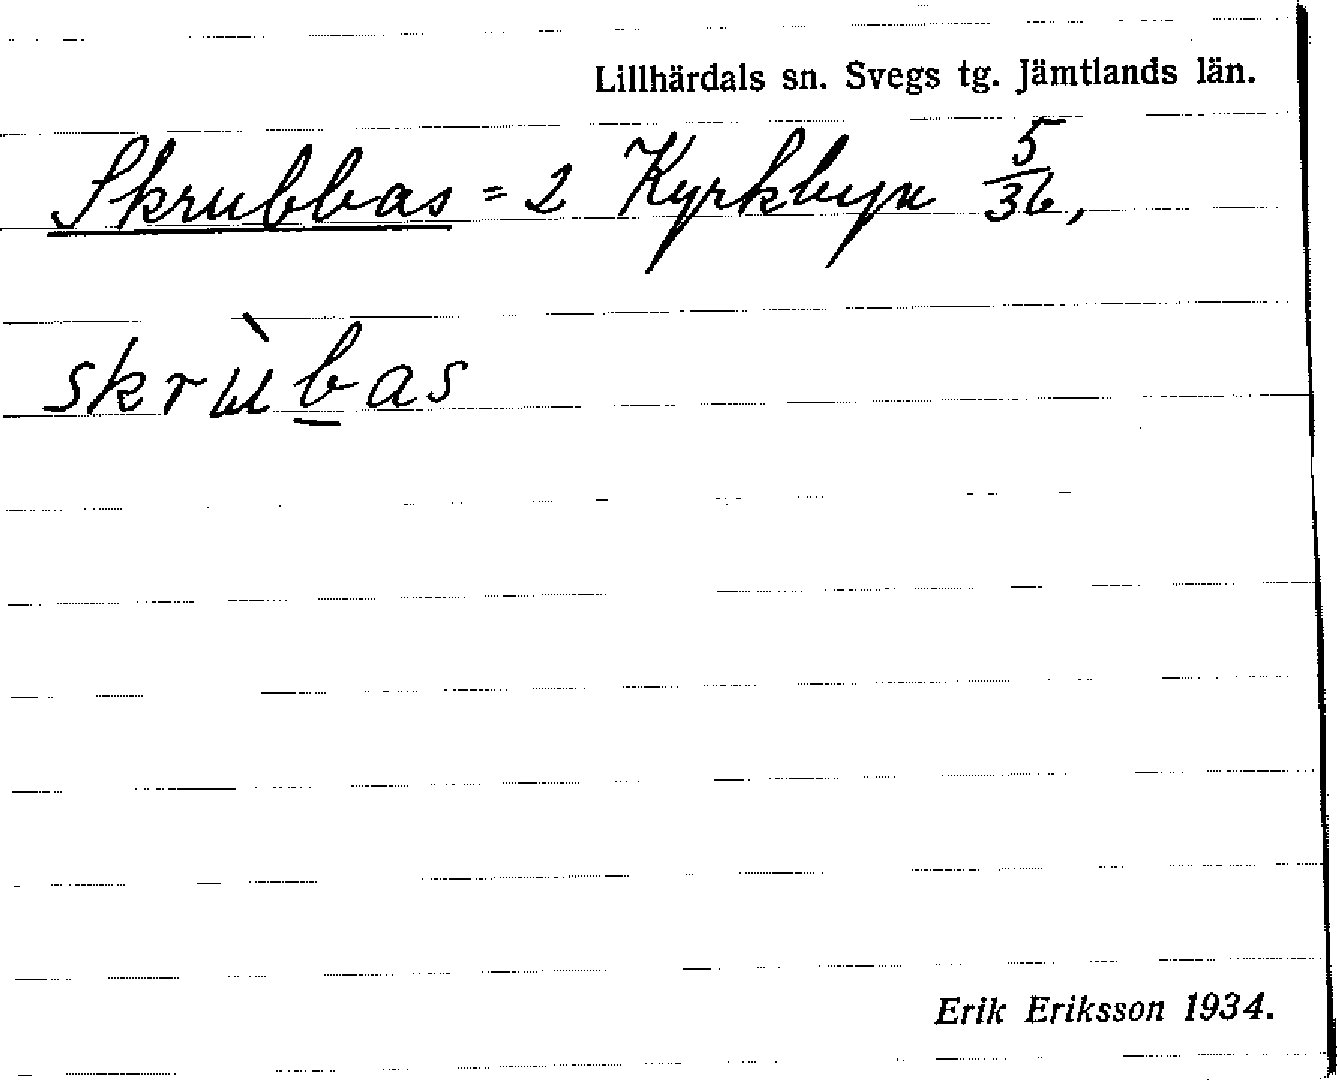 Lillhärdals sn. Svegs tg. Jämtlands län.
Skrubbas = 2 Kyrkbyn 5/36,
skrùbas
Erik Eriksson 1934.